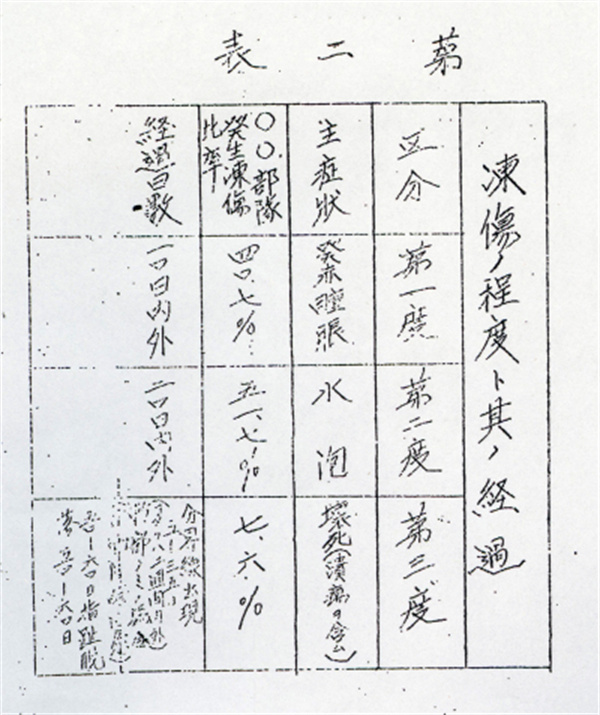 第二表
凍傷ノ程度ト其ノ経過
区分
第一度
第二度
第三度
主症状
発赤腫脹
水泡
壊死(潰瘍ヲ含ム)
〇〇部隊
発生凍傷
比率
四〇.七%
五一.七%
七.六%
経過日数
一〇日内外
二〇日内外
分界線出現